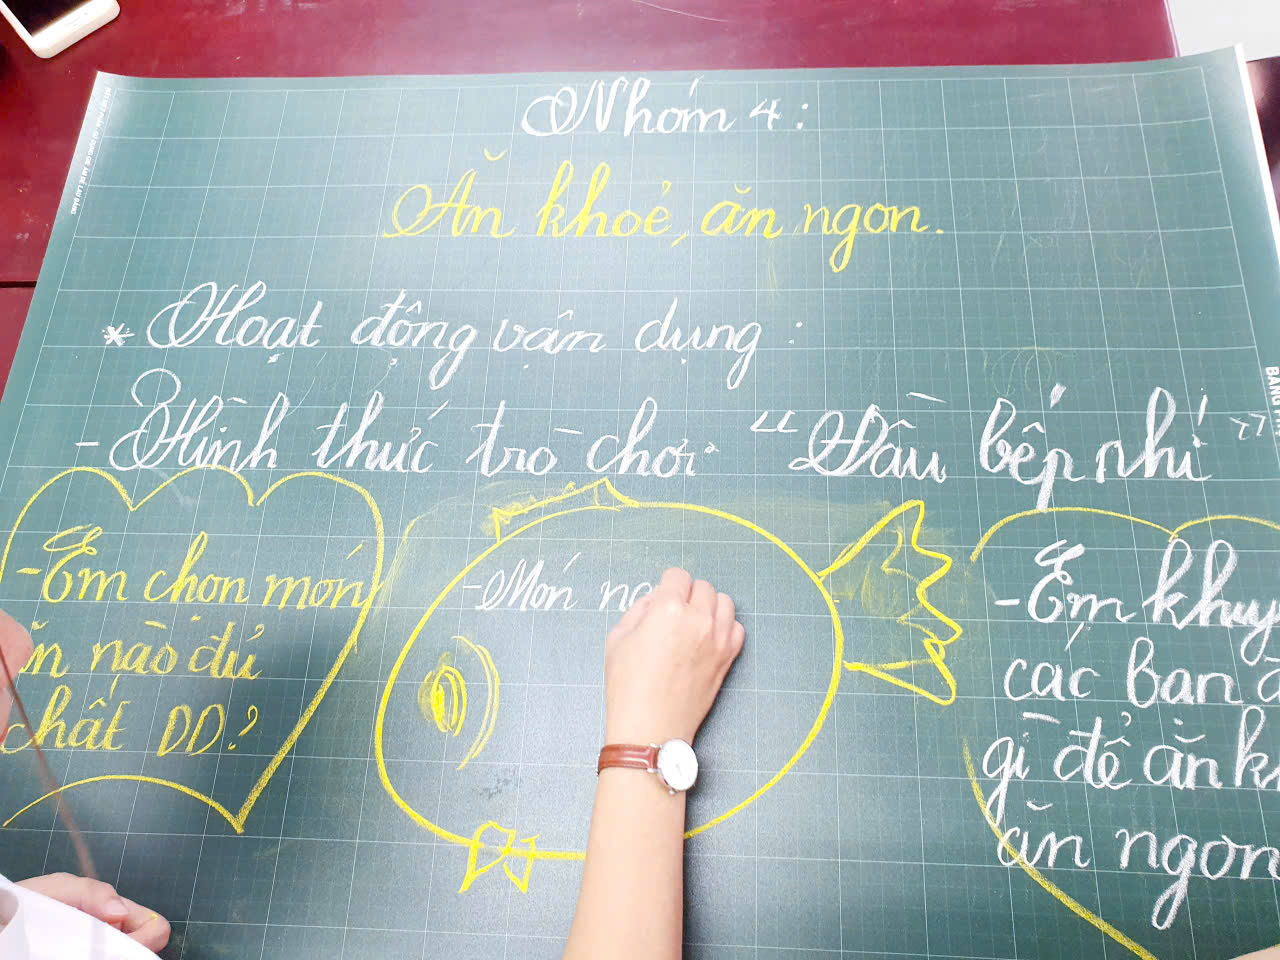 Nhóm 4:
Ăn khoẻ, ăn ngon.
* Hoạt động vận dụng:
- Hình thức trò chơi "Đầu bếp nhí"
- Em chọn món
ăn nào đủ
chất DD?
- Món
- Em
các bạn
gì để ăn
ăn ngon